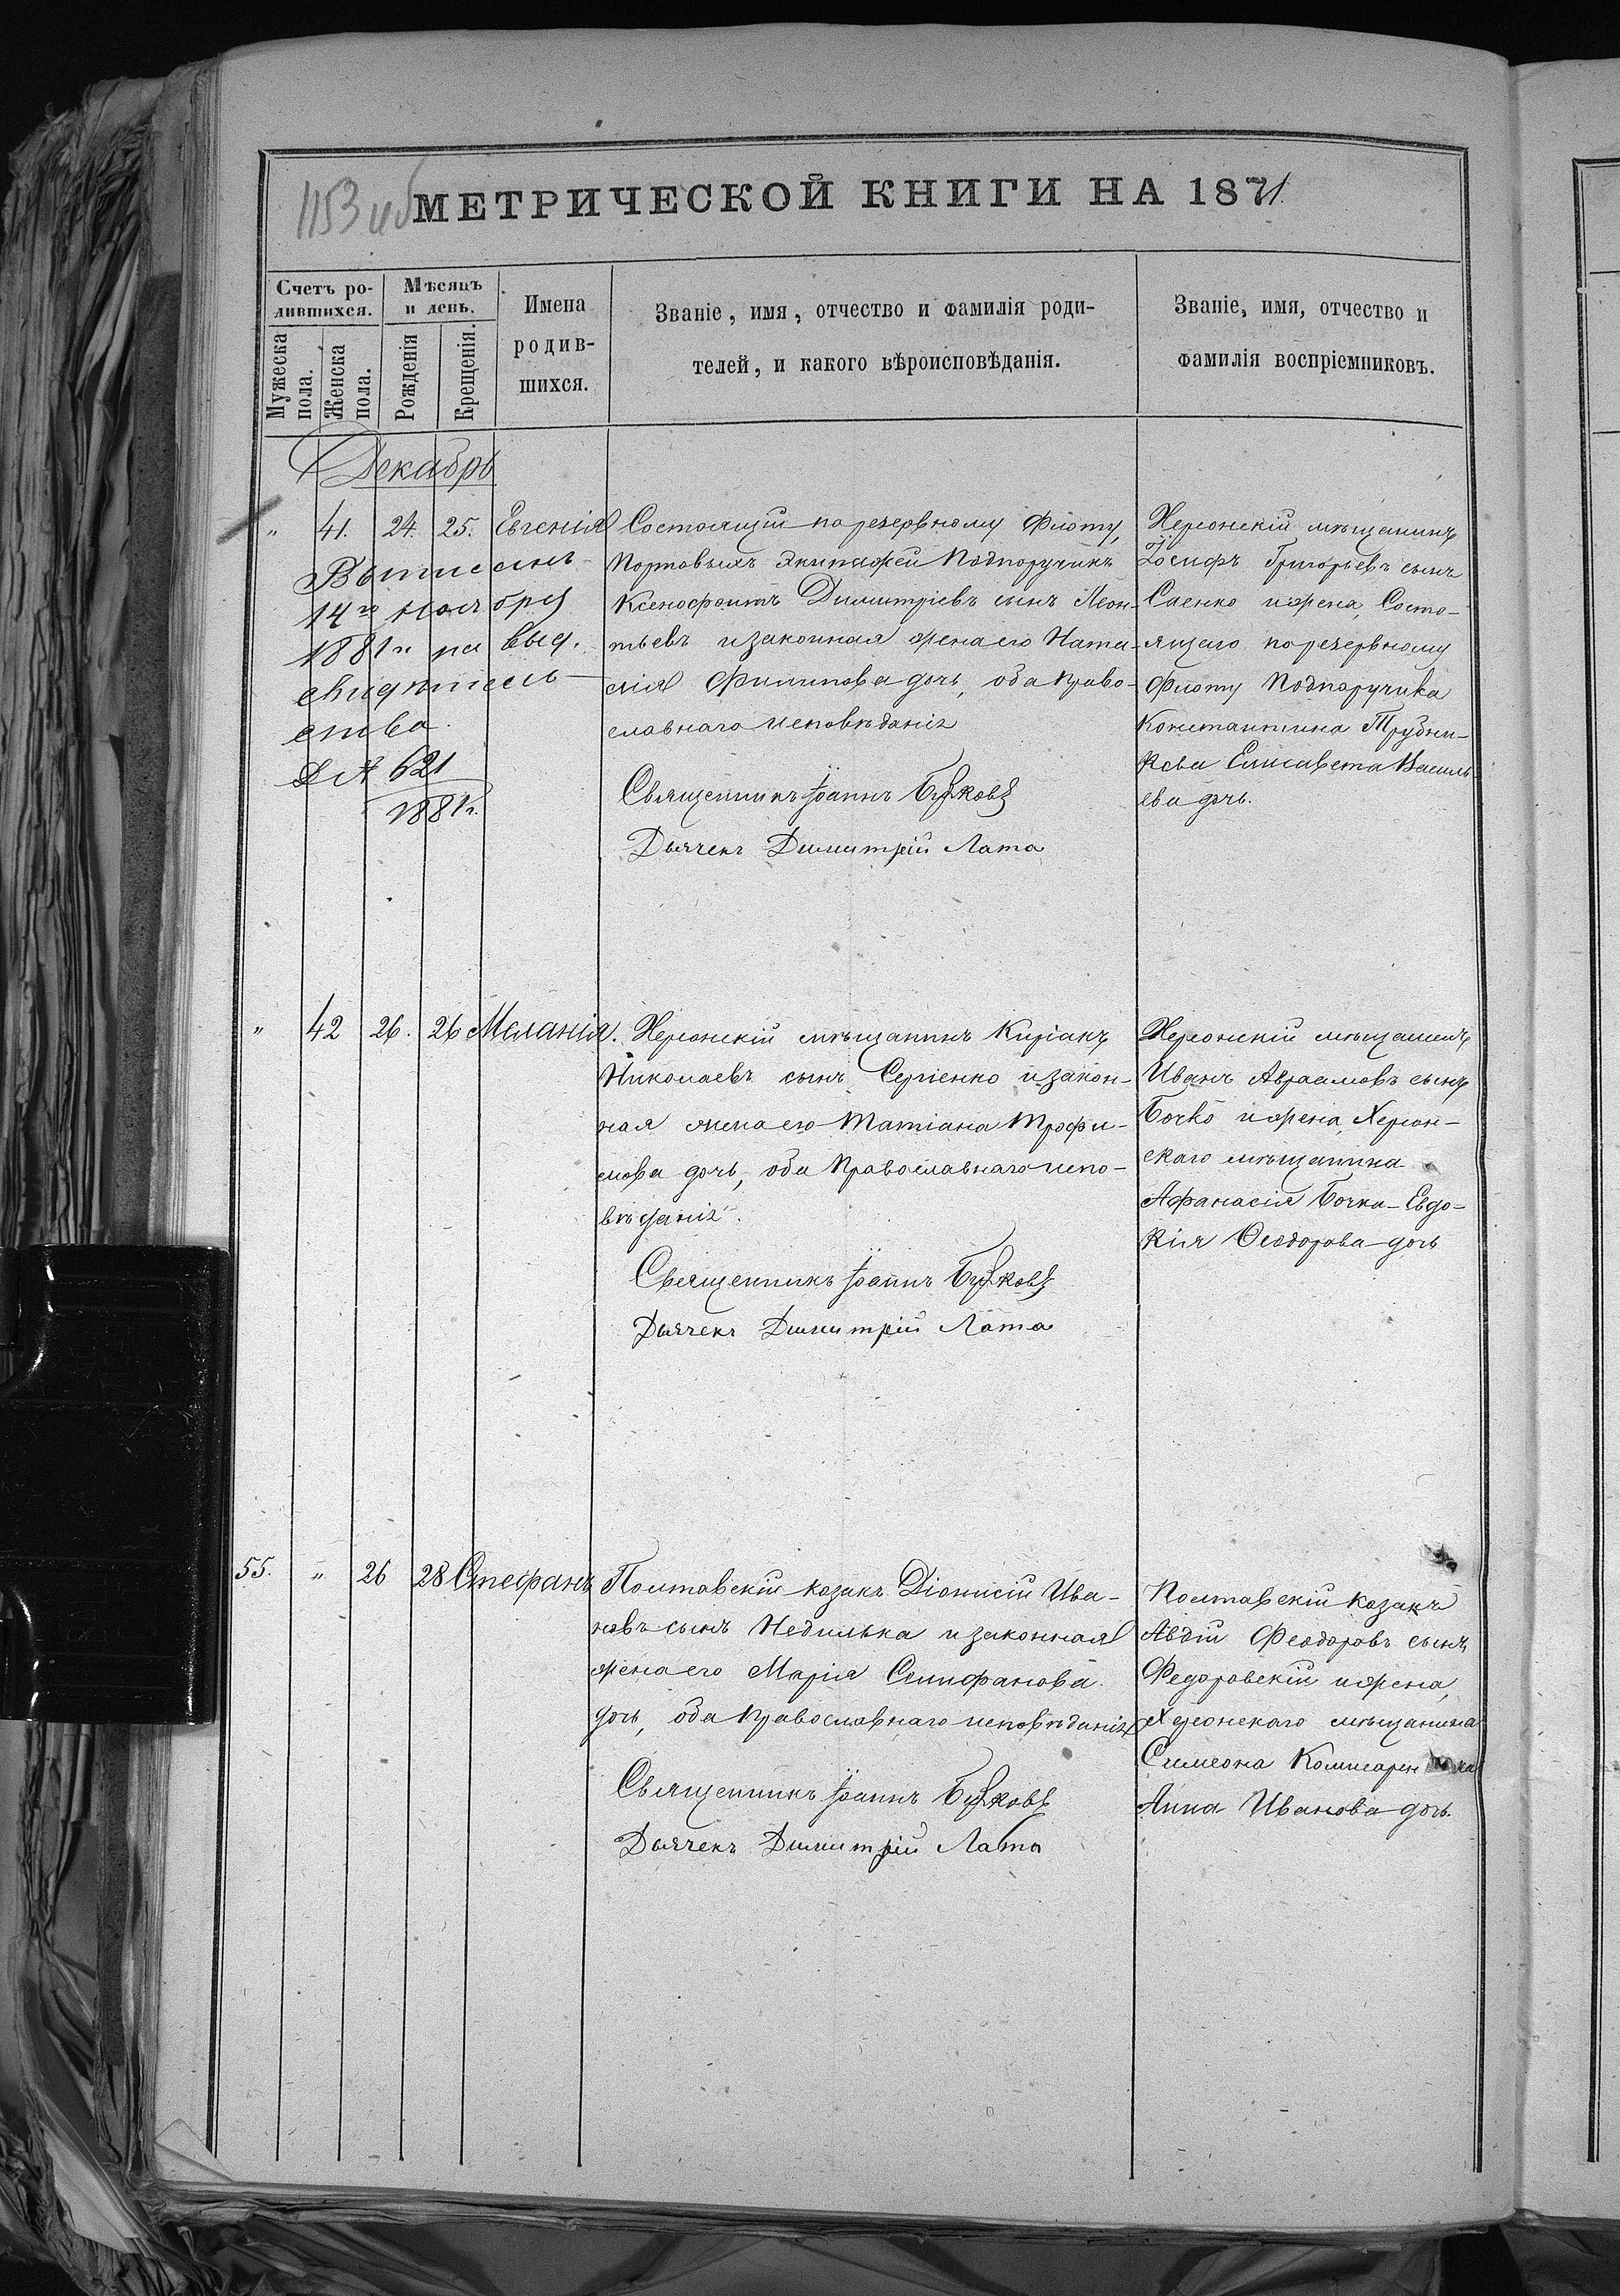 1153 об
МЕТРИЧЕСКОЙ КНИГИ НА 1871.
Счетъ ро-
дившихся.
Мужеска
пола.
Женска
пола.
Мѣсяцъ
и день.
Рожденія
Крещенія.
Имена
родив-
шихся.
Званіе, имя, отчество и фамилія роди-
телей, и какого вѣроисповѣданія.
Званіе, имя, отчество и
фамилія воспріемниковъ.
Декабрь
" 41. 24. 25. Евгенія
Выписанъ
14го ноября
1881г. на выд.
свидѣтель-
ства.
Д № 621
1881г.
Состоящій по резервному Флоту,
Портовыхъ Экипажей Подпоручикъ
Ксенофонтъ Димитріевъ сынъ Леон-
тьевъ и законная жена его Ната-
лія Филипова дочь, оба право-
славнаго исповѣданія
Священникъ Іоаннъ
Дьячекъ Димитрій Лата
Херсонскій мѣщанинъ
Іосифъ Григорьевъ сынъ
Саенко и жена, Состо-
ящаго по резервному
Флоту Подпоручика
Константина Трубни-
кова Елисавета Василь-
ева дочь.
" 42 26. 26 Меланія.
Херсонскій мѣщанинъ Киріакъ
Николаевъ сынъ Сергіенко и закон-
ная жена его Татіана Трофи-
мова дочь, оба Православнаго испо-
вѣданія.
Священникъ Іоаннъ
Дьячекъ Димитрій Лата
Херсонскій мѣщанинъ
Иванъ Авраамовъ сынъ
Бочко и жена, Херсон-
скаго мѣщанина
Афанасія Бочка - Евдо-
кія Феодорова дочь
55. " 26 28 Стефанъ
Полтавскій козакъ Діонисій Ива-
новъ сынъ Недилька и законная
жена его Марія Селифанова
дочь, оба Православнаго исповѣданія
Священникъ Іоаннъ
Дьячекъ Димитрій Лата
Полтавскій козакъ
Авдій Феодоровъ сынъ
Федоровскій и жена,
Херсонскаго мѣщанина
Симеона
Анна Иванова дочь.